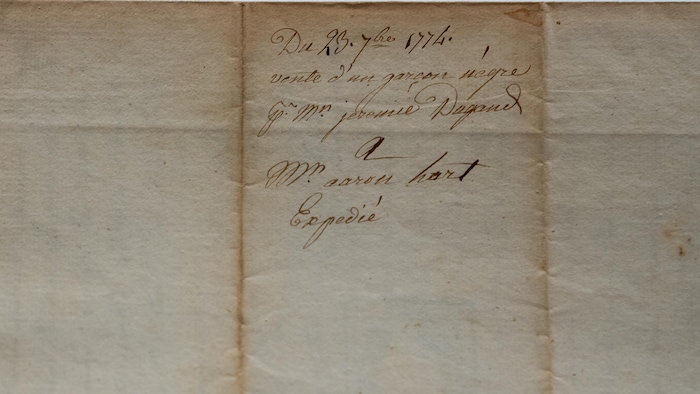 Du 23. 7bre 1774.
vente d'un garçon nègre
pr. Mr. jeremié Dugand
a
Mr. aaron hart
Expedié